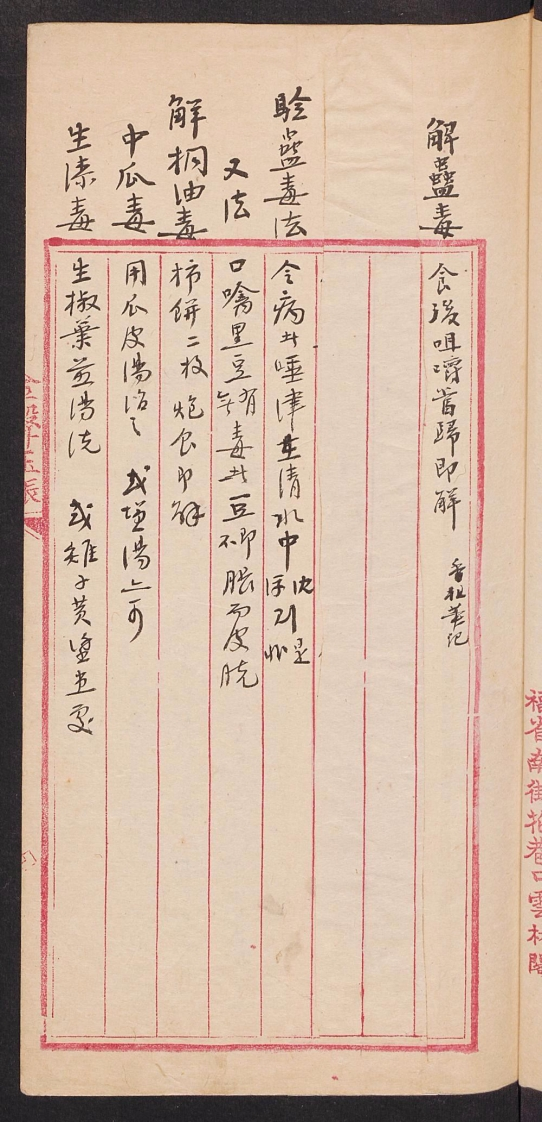 解蠱毒 食後咀嚼當歸即解 香祖筆記
驗蠱毒法 令病者唾津在清水中 沈則是 浮則非
又法 口噙黑豆 有毒者豆即脹而皮脫 無不
解桐油毒 柿餅二枚炮食即解
中瓜毒 用瓜皮湯治之 或塩湯亦可
生漆毒 生椒葉煎湯洗 或雞子黃塗患處
福省南街花巷口雲林閣